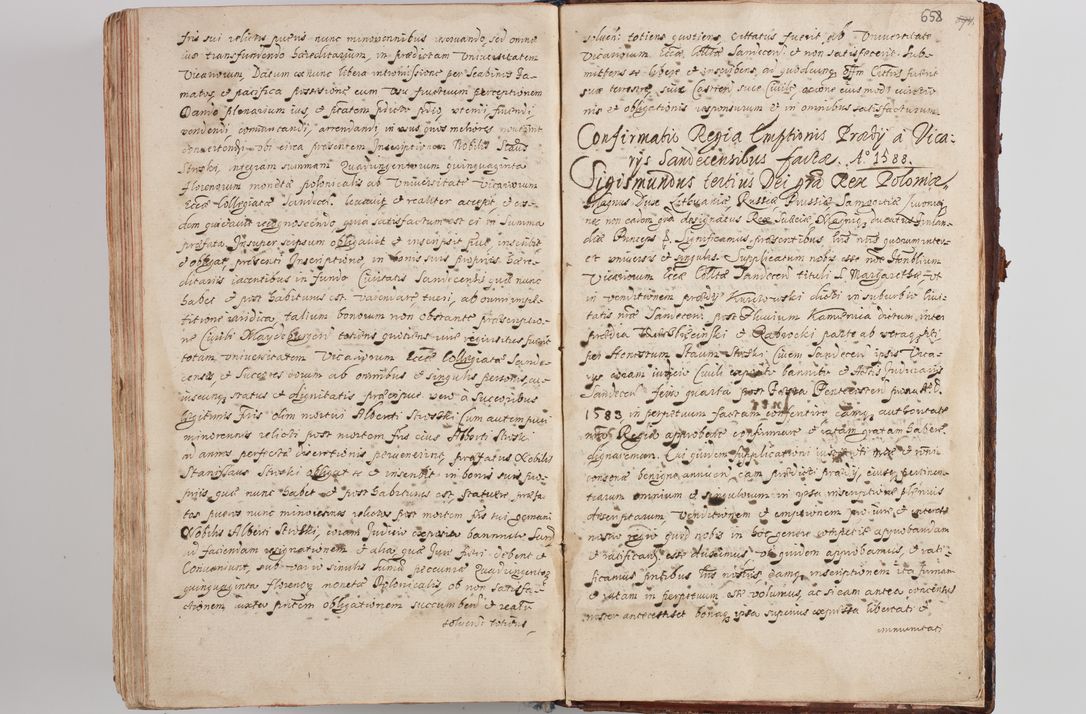 fris sui relictis pueris nunc minorennibus reservando, sed omne
ius transfundendo haereditarium, in praedictam Universitatem
Vicariorum, Datum est nunc libera intromissione per Scabinos Ja-
matos, et pacifica possessione cum usu fructuum perceptionem
Dando plenarium ius, et ptatem pdicto pdio utendi, fruendi,
vendendi, commutandi, arrendandi, in usus suos meliores
convertendi, ubi circa praesentem Inscriptionem Nobilis Stanis
Stroski, integram summam Quadringentorum quinquaginta
florenorum monetae polonicalis ab Universitate Vicariorum
Ecclae Collegiatae Sandecen levavit et realiter accepit, et eos-
dem quietavit recognoscendo quia satisfactum est ei in Summa
praefata. Insuper seipsum obligavit et inscripsit put inscribit
et obligat praesenti Inscriptione, in bonis suis propriis haere-
ditariis iacentibus in fundo Civitatis Sandecensis quae nunc
habet et post habiturus est. varendare tueri, ab omni impe-
titione iuridica, talium bonorum non obstante praescriptio-
ne Civili Maydeburgen toties quoties iure requisitus fuerit
totam Universitatem Vicariorum Ecclae Collegiatae Sande-
censis, et Successores eorum ab omnibus et singulis personis, cu-
iuscunq status et dignitatis praecipue vero a Successoribus
legitimis fris olim mortui Alberti Stroski. Cum autem pueri
minorennes relicti post mortem fris eius Alberti Stroski
in annos perfectae discretionis pervenerint, praefatus Nobilis
Stanislaus Stroski obligat se et inscribit in bonis suis pro-
priis, quae nunc habet et post habiturus est Statuere praefa-
tos pueros nunc minorennes relictos post mortem fris sui germani
Nobilis Alberti Stroski, coram Iudicio exposito bannito Sand
ad faciendam resignationem et alia quae Juri fieri debent et
Conveniunt, sub vadio simili summae pecuniae Quadringentor
quinquaginta florenor monetae Polonicalis, ob non satisfa-
ctionem iuxta pntem obligationem succumben et reatu
solvendi toties
658
solvendi toties quoties, citatus fuerit ab Universitate
Vicariorum Ecclae Collitae Sandecen et non satisfecerit. Sub-
mittens se libere et inscribens, ad quodcunq Offm Citus fuerit
sive terrestre, sive Castren sive Civile, racione eiusmodi
nis et obligationis responsurum et in omnibus satisfacturum
Confirmatio Regia Emptionis Praedij a Vica-
rys Sandecensibus factae. Ao 1588.
Sigismundus tertius Dei gra Rex Poloniae
Magnus Dux Lithuaniae Russiae, Prussiae Samogitiae Livoniae
nec non eadem gra designatus Rex Sueciae, Magniq ducatus Finlan-
diae Princeps &. Significamus, praesentibus, lris nris quorum inter-
est universis et singulis. Supplicatum nobis esse noe Honblium
Vicariorum Ecclae Collitae Sandecen tituli S. Margarethae, ut
in venditionem praedij Kurowski dicti in suburbio Civi-
tatis nrae Sandecen post Fluvium Kamienica dictum, inter
praedia et Dabrocki parte ab utraq sita
per Honestum Stanum Stroski Civem Sandecen ipsis Vica-
rys coram iudicio Civili exposito bannito et Actis Juridicis
Sandecen feria quarta post Festa Pentecosten anno
1583 in perpetuum factam consentire eamq authoritate
nra Regia approbare confirmare et ratam gratam habere
dignaremur. Cui quidem supplicationi iustae et rationi
consenae benigne annuen. eam praedicti praedij, eiusq pertinen-
tiarum omnium et singularum in ipsa inscriptione plenius
descriptarum, Venditionem et emptionem pro iure et autorite
nostro regio quod nobis in hoc genere competit approbandam
et ratificandam esse duximus uti quidem approbamus, et rati-
ficamus pntibus lris nostris, eamq inscriptionem ita firmam
et ratam in perpetuum esse volumus, ac si eam antea consensus
noster antecessisset bonaq ipsa superius expressa libertati et
immunitati